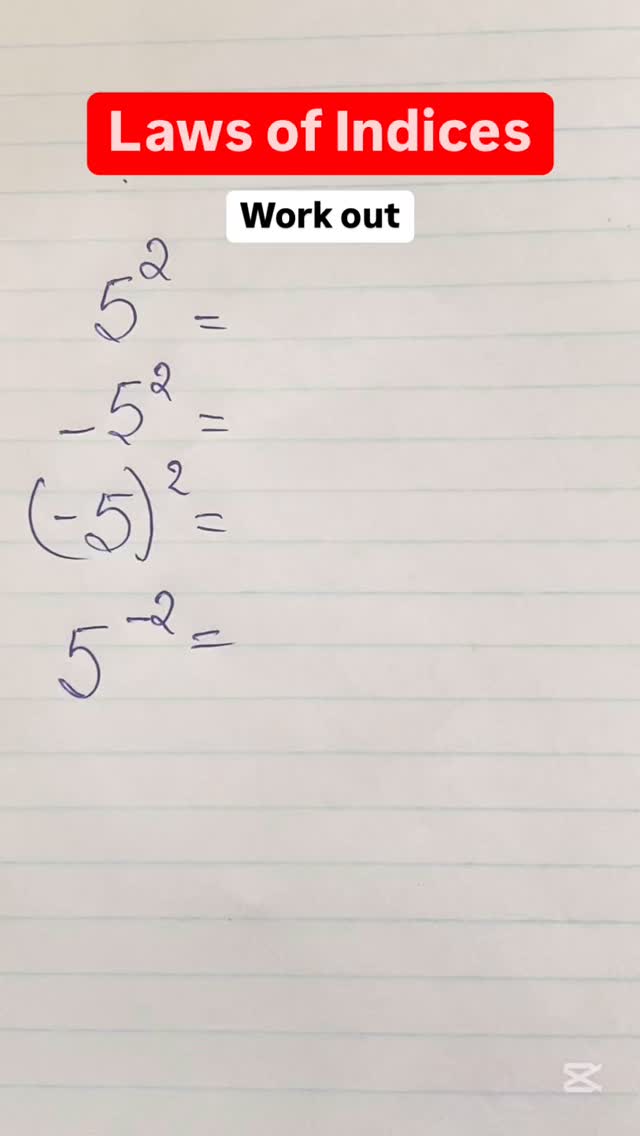 Laws of Indices
Work out
5² =
-5² =
(-5)² =
5⁻² =